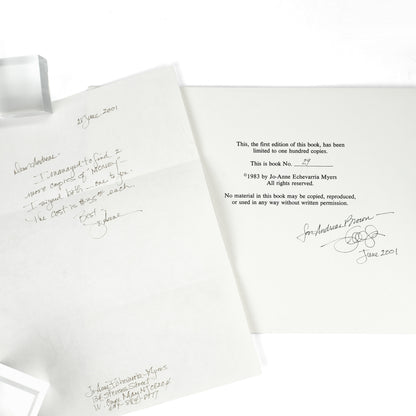 21 June, 2001
Dear Andreae-
I managed to find 2
more copies of
I signed both - one to you.
The cost is each.
Best,
JoAnne
Jo-Anne Echevarria-Myers
Street
W. Cape May NJ 08204
This, the first edition of this book, has been
limited to one hundred copies.
This is book No. 29
©1983 by Jo-Anne Echevarria Myers
All rights reserved.
No material in this book may be copied, reproduced,
or used in any way without written permission.
for Andreae Brown
June 2001